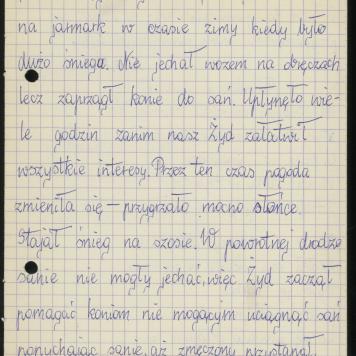 na jarmark w czasie zimy kiedy było
dużo śniega. Nie jechał wozem na obręczach
lecz zaprzągł konie do sań. Upłynęło wie-
le godzin zanim nasz Żyd załatwił
wszystkie interesy. Przez ten czas pogoda
zmieniła się – przygrzało mocno słońce.
Stajał śnieg na szosie. W powrotnej drodze
sanie nie mogły jechać, więc Żyd zaczął
pomagać koniom nie mogącym uciągnąć sań
popychając sanie, aż zmęczony przystanął